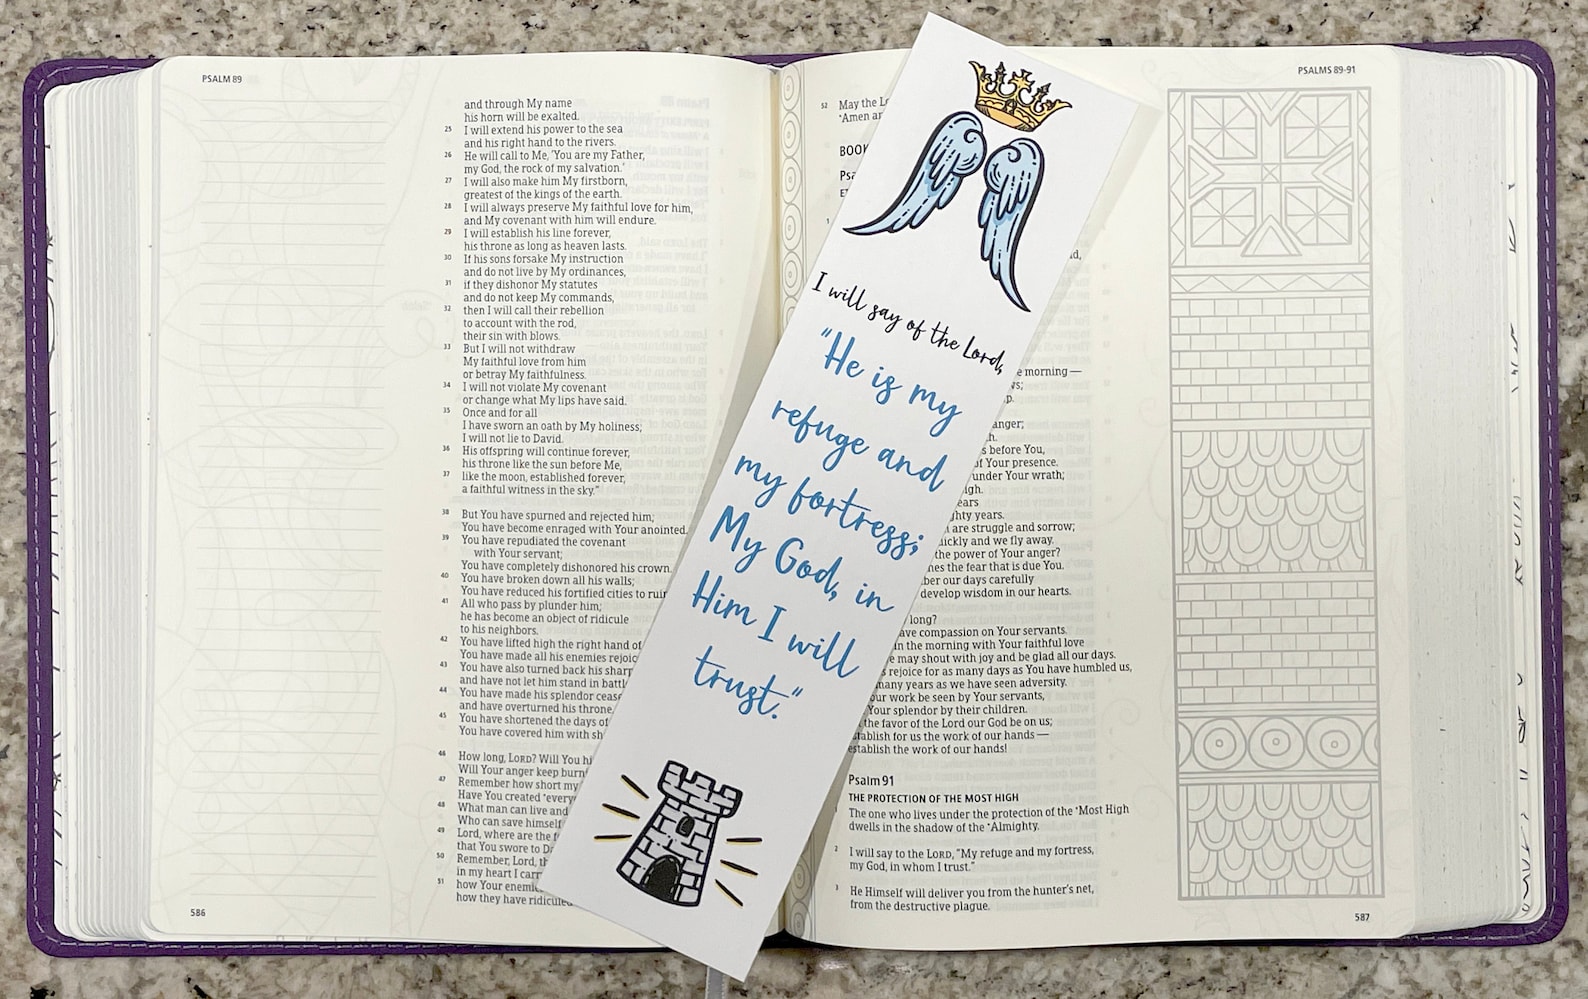 PSALM 89
and through My name
his horn will be exalted.
25 I will extend his power to the sea
and his right hand to the rivers.
26 He will call to Me, 'You are my Father,
my God, the rock of my salvation.'
27 I will also make him My firstborn,
greatest of the kings of the earth.
28 I will always preserve My faithful love for him,
and My covenant with him will endure.
29 I will establish his line forever,
his throne as long as heaven lasts.
30 If his sons forsake My instruction
and do not live by My ordinances,
31 if they dishonor My statutes
and do not keep My commands,
32 then I will call their rebellion
to account with the rod,
their sin with blows.
33 But I will not withdraw
My faithful love from him
or betray My faithfulness.
34 I will not violate My covenant
or change what My lips have said.
35 Once and for all
I have sworn an oath by My holiness;
I will not lie to David.
36 His offspring will continue forever,
his throne like the sun before Me,
37 like the moon, established forever,
a faithful witness in the sky."
38 But You have spurned and rejected him;
You have become enraged with Your anointed.
39 You have repudiated the covenant
with Your servant;
You have completely dishonored his crown.
40 You have broken down all his walls;
You have reduced his fortified cities to
41 All who pass by plunder him;
he has become an object of ridicule
to his neighbors.
42 You have lifted high the right hand of
You have made all his enemies
43 You have also turned back his
and have not let him stand in
44 You have made his splendor
and have overturned his throne.
45 You have shortened the days of
You have covered him with
46 How long, LORD? Will You
Will Your anger keep
47 Remember how short my
Have You created
48 What man can live and
Who can save himself
49 Lord, where are the
that You swore to
50 Remember, Lord,
in my heart I
51 how Your
how they have
586
I will say of the Lord,
"He is my
refuge and
my fortress;
My God, in
Him I will
trust."
PSALMS 89-91
52 May the
Amen
BOOK
1
morning —
anger;
before You,
of Your presence.
under Your wrath;
years.
are struggle and sorrow;
and we fly away.
the power of Your anger?
the fear that is due You.
our days carefully
develop wisdom in our hearts.
long?
compassion on Your servants.
in the morning with Your faithful love
may shout with joy and be glad all our days.
rejoice for as many days as You have humbled us,
many years as we have seen adversity.
work be seen by Your servants,
Your splendor by their children.
the favor of the Lord our God be on us;
establish for us the work of our hands —
establish the work of our hands!
Psalm 91
THE PROTECTION OF THE MOST HIGH
1 The one who lives under the protection of the *Most High
dwells in the shadow of the *Almighty.
2 I will say to the LORD, "My refuge and my fortress,
my God, in whom I trust."
3 He Himself will deliver you from the hunter's net,
from the destructive plague.
587